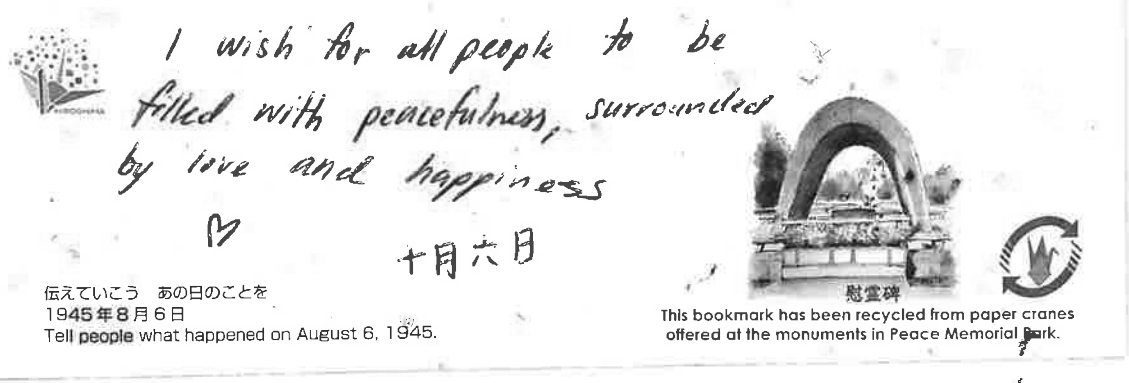 I wish for all people to be
filled with peacefulness, surrounded
by love and happiness
十月六日
HIROSHIMA
伝えていこう あの日のことを
1945年8月6日
Tell people what happened on August 6, 1945.
慰霊碑
This bookmark has been recycled from paper cranes
offered at the monuments in Peace Memorial Park.